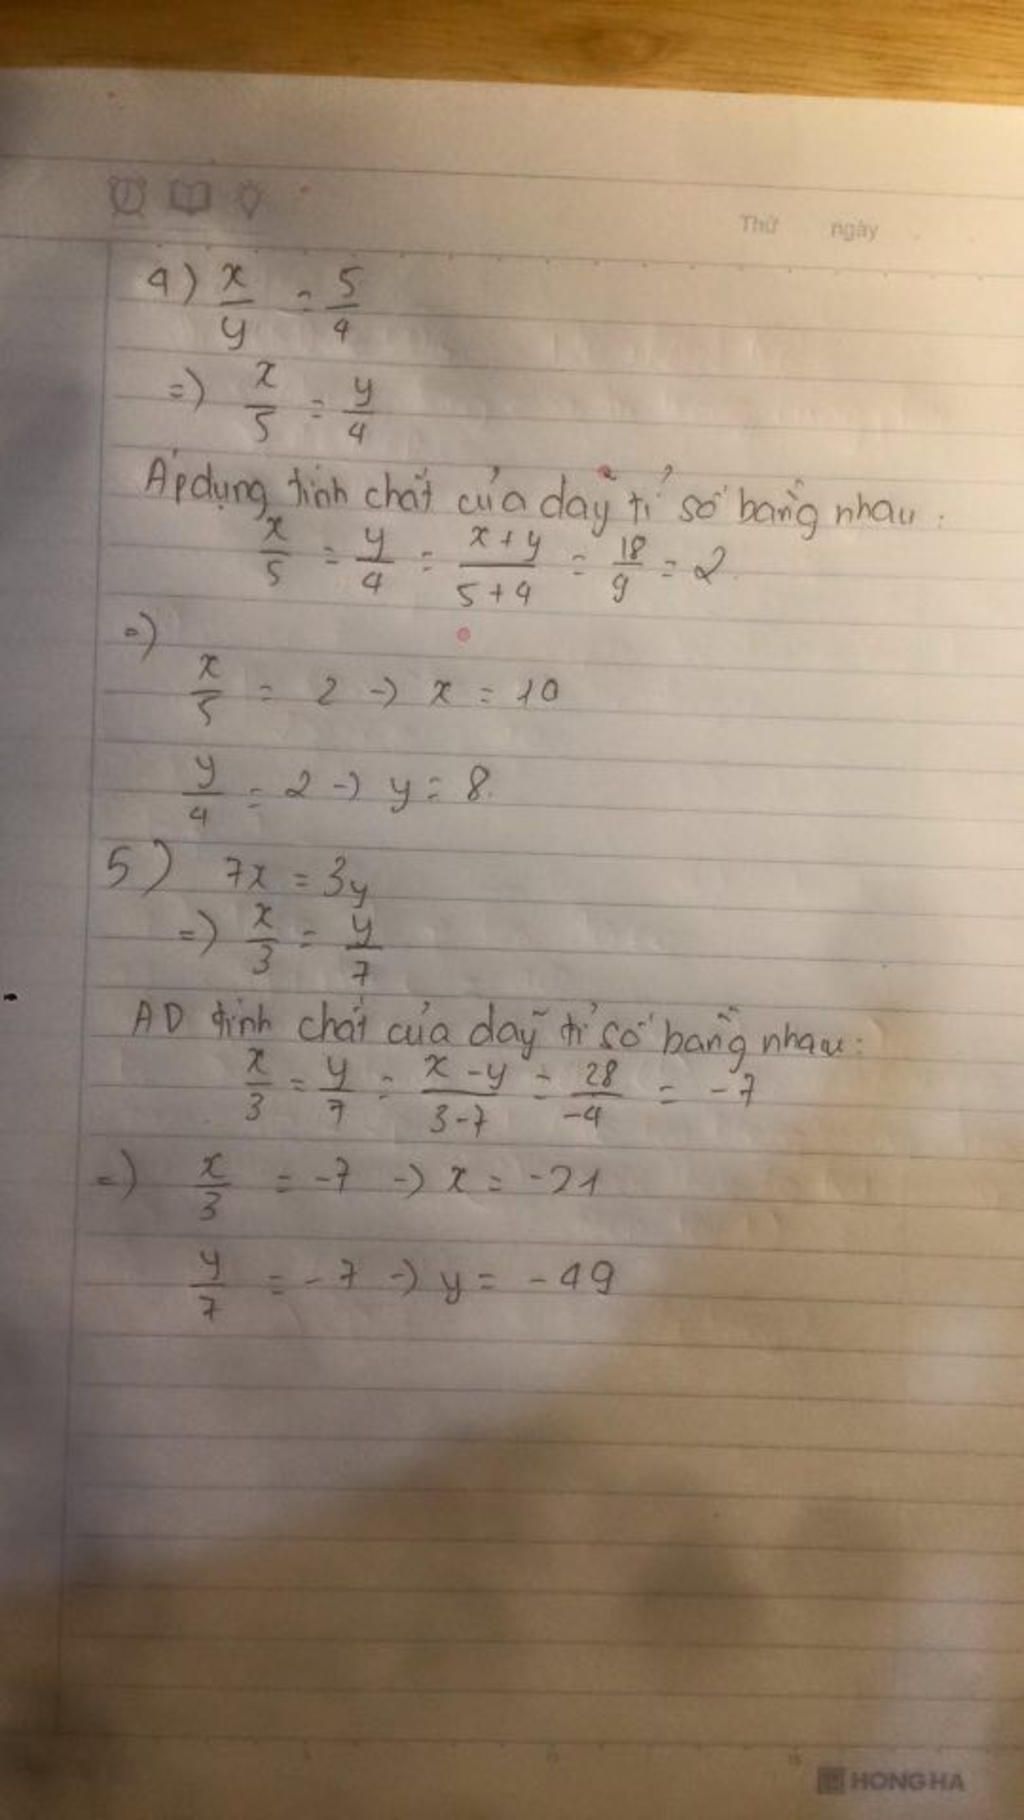 Thứ ngày
4) x/y = 5/4
=) x/5 = y/4
Áp dụng tính chất của dãy tỉ số bằng nhau:
x/5 = y/4 = x+y/5+4 = 18/9 = 2
=)
x/5 = 2 -> x = 10
y/4 = 2 -> y = 8.
5) 7x = 3y
=) x/3 = y/7
AD tính chất của dãy tỉ số bằng nhau:
x/3 = y/7 = x-y/3-7 = 28/-4 = -7
=) x/3 = -7 -> x = -21
y/7 = -7 -> y = -49
HONG HA